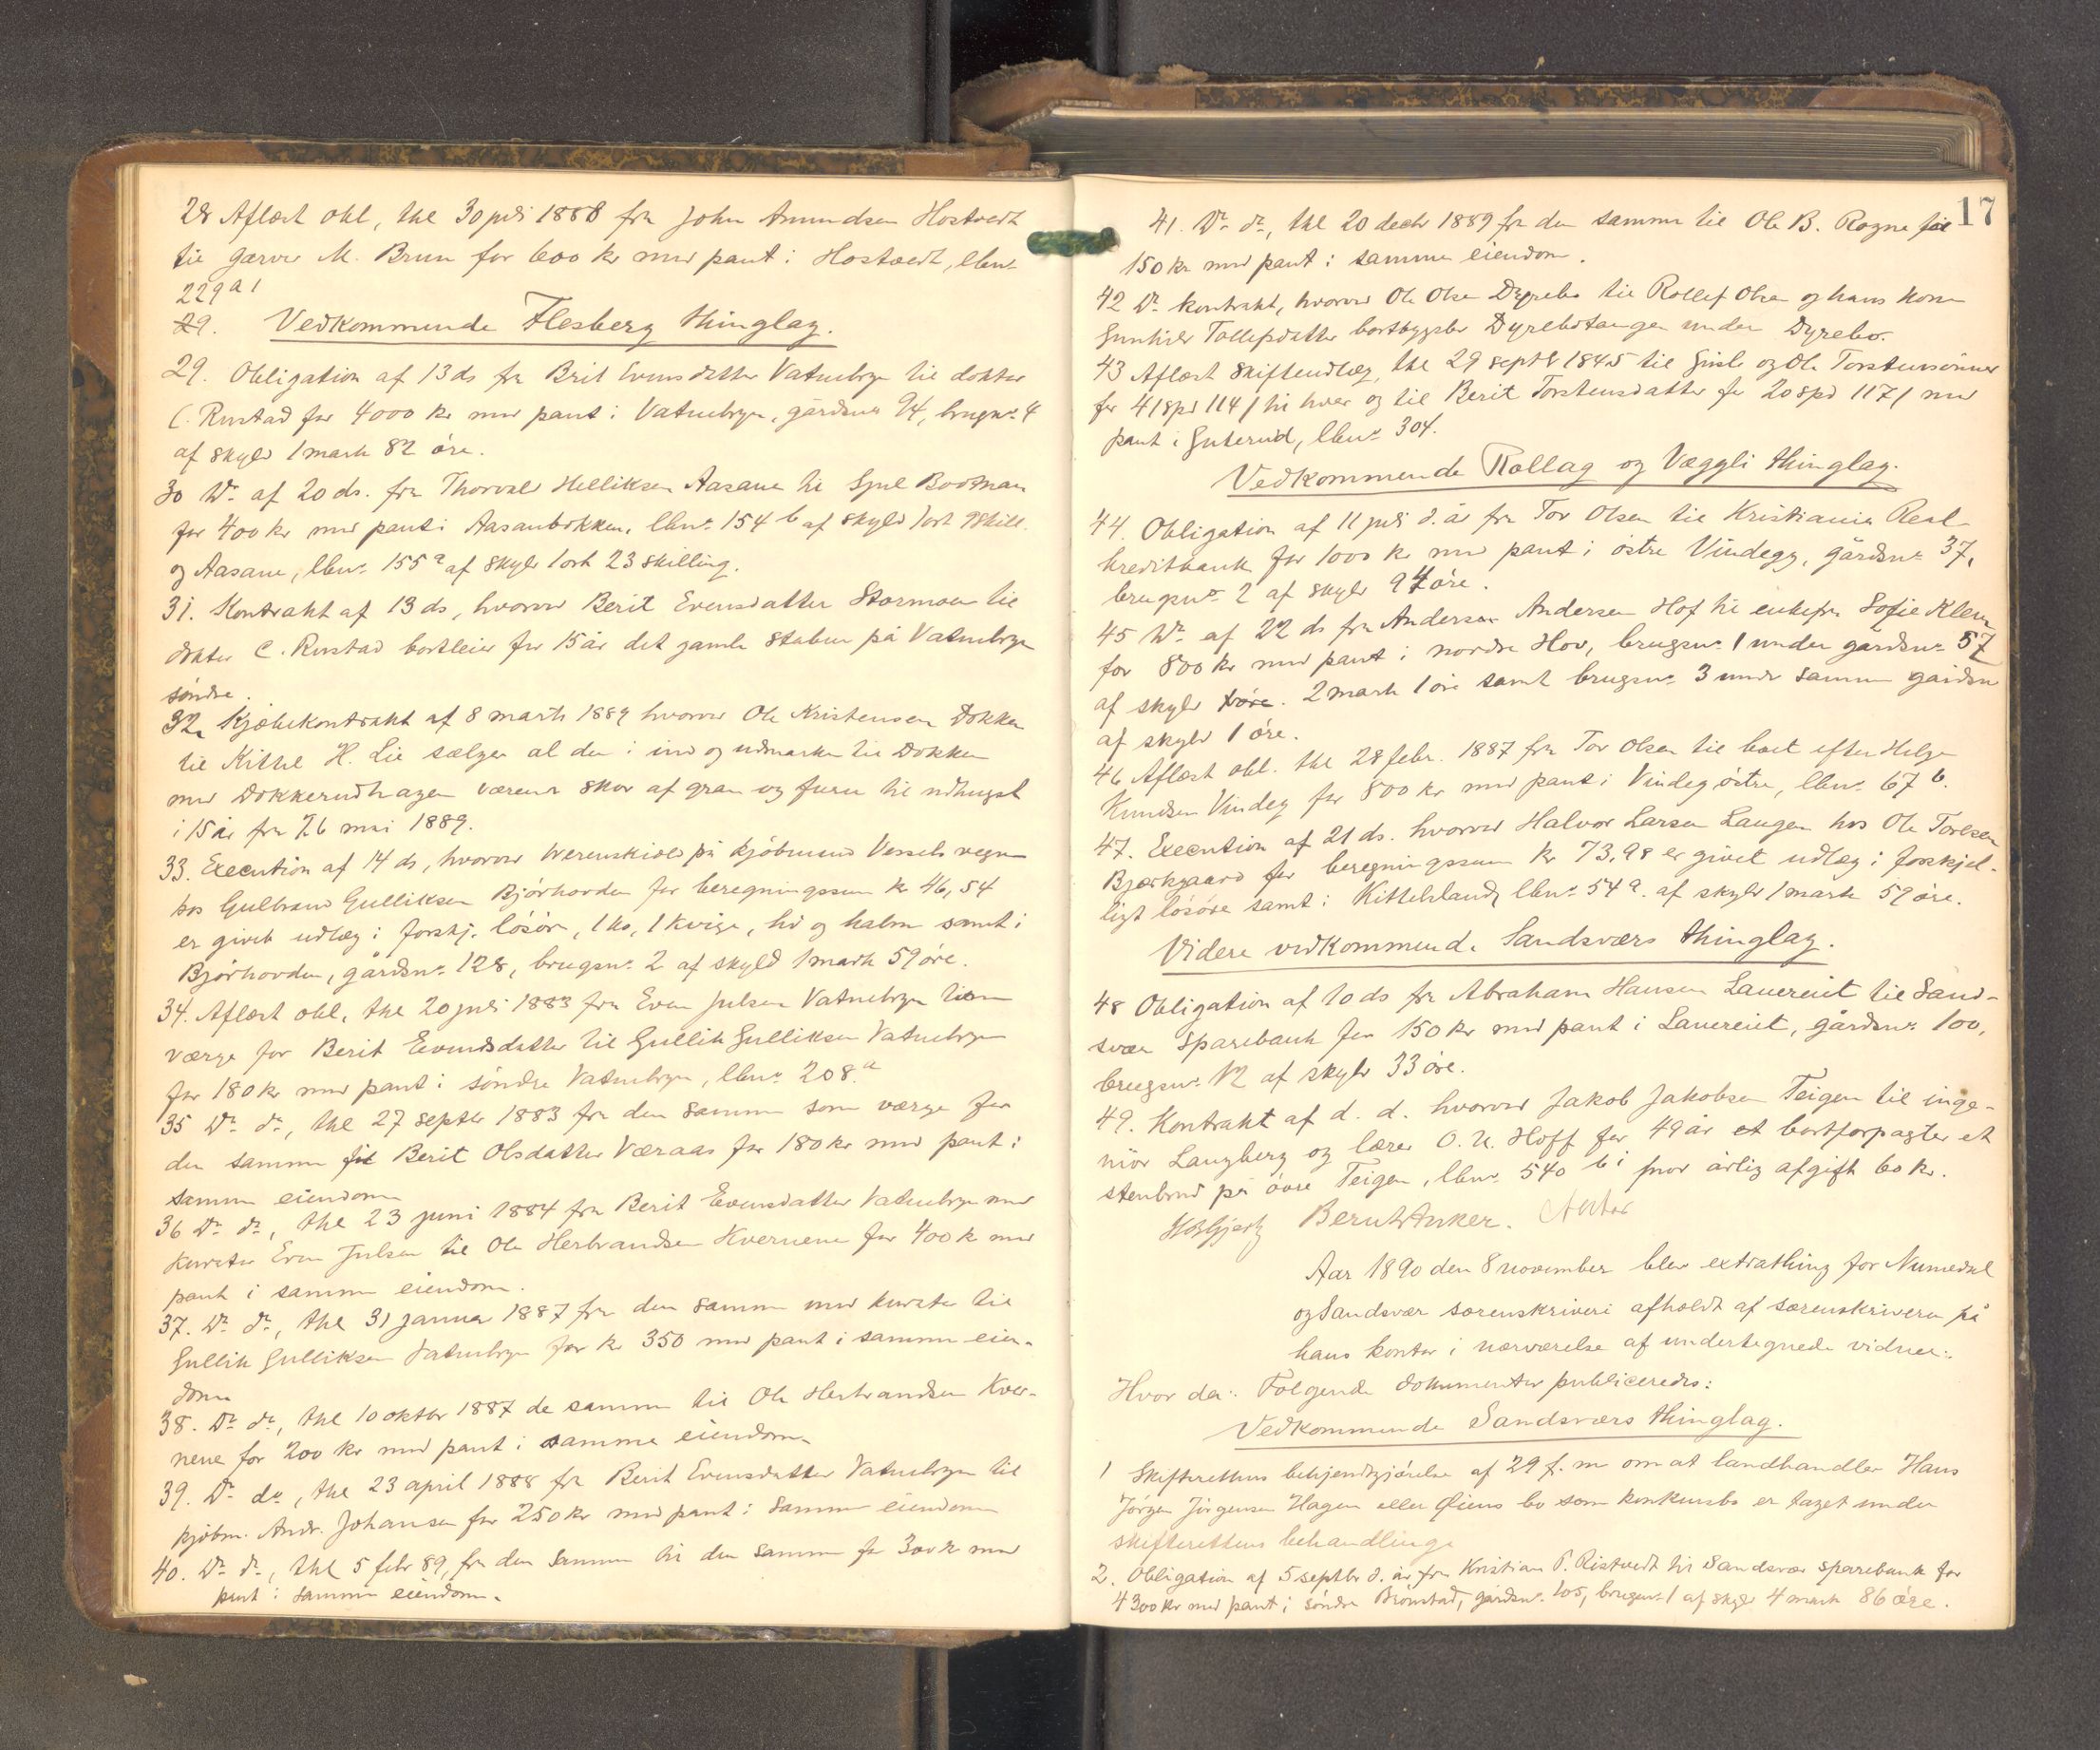 28 Aflæst obl, thl 30 juli 1888 fra John Amundsen Hostvedt
til garver M. Brun for 600 kr med pant i Hostvedt, lbnr
229 a 1
29. Vedkommende Flesberg thinglag.
29. Obligation af 13 ds fra Brit Evensdatter Vatnebryn til doktor
C. Rustad for 4000 kr med pant i Vatnebryn, gårdsnr 94, brugsnr. 4
af skyld 1 mark 82 öre.
30 Do af 20 ds. fra Thorvald Helliksen Aasane til Sjul Bodsman
for 400 kr med pant i Aasanbakken, lbnr. 154 b af skyld 1 ort 9 skill.
og Aasane, lbnr. 155 a af skyld 1 ort 23 skilling.
31. Kontrakt af 13 ds, hvorved Berit Evensdatter Stormoen til
doktor C. Rustad bortleier for 15 år det gamle stabur på Vatnebryn
söndre.
32. Kjøbekontrakt af 8 marts 1889 hvorved Ole Kristensen Dokken
til Kittel H. Lie sælger al den i ind og udmarken til Dokken
med Dokkerudhagen værende skov af gran og furu til udhugst
i 15 år fra 26 mai 1889.
33. Execution af 14 ds, hvorved Werenskiold på kjöbmand Vessels vegne
hos Gulbrand Gulliksen Bjórhovden for beregningssum kr 46,54
er givet udlæg i forskj. lösöre, 1 ko, 1 kvige, hö og halm samt i
Bjórhovden, gårdsnr. 128, brugsnr. 2 af skyld 1 mark 59 öre.
34. Aflæst obl, thl 20 juli 1883 fra Even Julsen Vatnebryn som
værge for Berit Evendsdatter til Gullik Gulliksen Vatnebryn
for 180 kr med pant i söndre Vatnebryn, lbnr. 208 a
35 Do do, thl 27 septbr 1883 fra den samme som værge for
den samme til Berit Olsdatter Væraas for 180 kr med pant i
samme eiendom
36 Do do, thl 23 juni 1884 fra Berit Evensdatter Vatnebryn med
kurator Even Julsen til Ole Herbrandsen Kvernene for 400 k med
pant i samme eiendom.
37. Do do, thl 31 januar 1887 fra den samme med kurator til
Gullik Gulliksen Vatnebryn for kr 350 med pant i samme eien-
dom
38. Do do, thl 10 oktbr 1887 de samme til Ole Herbrandsen Kver-
nene for 200 kr med pant i samme eiendom.
39. Do do, thl 23 april 1888 fra Berit Evensdatter Vatnebryn til
kjöbm. Andr. Johansen for 250 kr med pant i samme eiendom
40. Do do, thl 5 febr 89, fra den samme til den samme for 300 k med
pant i samme eiendom.
17
41. Do do, thl 20 decbr 1889 fra den samme til Ole B. Rogne for
150 kr med pant i samme eiendom.
42 Do kontrakt, hvorved Ole Olsen Dyrebo til Rollef Olsen og hans kone
Gunhild Tollefsdatter bortbygsler Dyrebotangen under Dyrebo.
43 Aflæst skifteudlæg, thl 29 septbr 1845 til Gisle og Ole Torstensönner
for 41 spd 114 ſ til hver og til Berit Torstensdatter for 20 spd 117 ſ med
pant i Guterud, lbnr 304.
Vedkommende Rollag og Væggli thinglag.
44. Obligation af 11 juli d. år fra Tov Olsen til Kristiania Real-
kreditbank for 1000 kr med pant i östre Vindegg, gårdsnr 37,
brugsnr. 2 af skyld 94 öre.
45 Do af 22 ds fra Anderson Andersen Hof til enkefru Sofie Klem
for 800 kr med pant i nordre Hov, brugsnr. 1 under gårdsnr. 57
af skyld 2 mark 1 öre samt brugsnr. 3 under samme gårdsnr
af skyld 1 öre.
46 Aflæst obl. thl 28 febr. 1887 fra Tov Olsen til boet efter Helge
Knudsen Vindeg for 800 kr med pant i Vindeg östre, lbnr. 67 b.
47. Execution af 21 ds. hvorved Halvor Larsen Laugen hos Ole Torlesen
Bjerkgaard for beregningssum kr 73,98 er givet udlæg i forskjel-
ligt lösöre samt i Kittelsland, lbnr. 54 a. af skyld 1 mark 59 öre.
Videre vedkommende Sandsværs thinglag.
48 Obligation af 10 ds fra Abraham Hansen Lauereiet til Sand-
svær Sparebank for 150 kr med pant i Lauereiet, gårdsnr. 100,
brugsnr. 12 af skyld 33 öre.
49. Kontrakt af d. d. hvorved Jakob Jakobsen Teigen til inge-
niör Langberg og lærer O. N. Hoff for 49 år bortforpagter et
stenbrud på övre Teigen, lbnr. 540 b i mod årlig afgift 60 kr.
Bernt Anker.
Aar 1890 den 8 november blev extrathing for Numedal
og Sandsvær sorenskriveri afholdt af sorenskriveren på
hans kontor i nærværelse af undertegnede vidner:
Hvor da: Folgende dokumenter publiceredes:
Vedkommende Sandsværs thinglag.
1 Skifterettens bekjendtgjörelse af 29 f. m om at landhandler Hans
Jörgen Jörgensen Hagen eller Öiens bo som konkursbo er taget under
skifterettens behandling
2. Obligation af 5 septbr d. år fra Kristian P. Ristvedt til Sandsvær sparebank for
4300 kr med pant i söndre Brönstad, gårdsnr. 105, brugsnr. 1 af skyld 4 mark 86 öre.